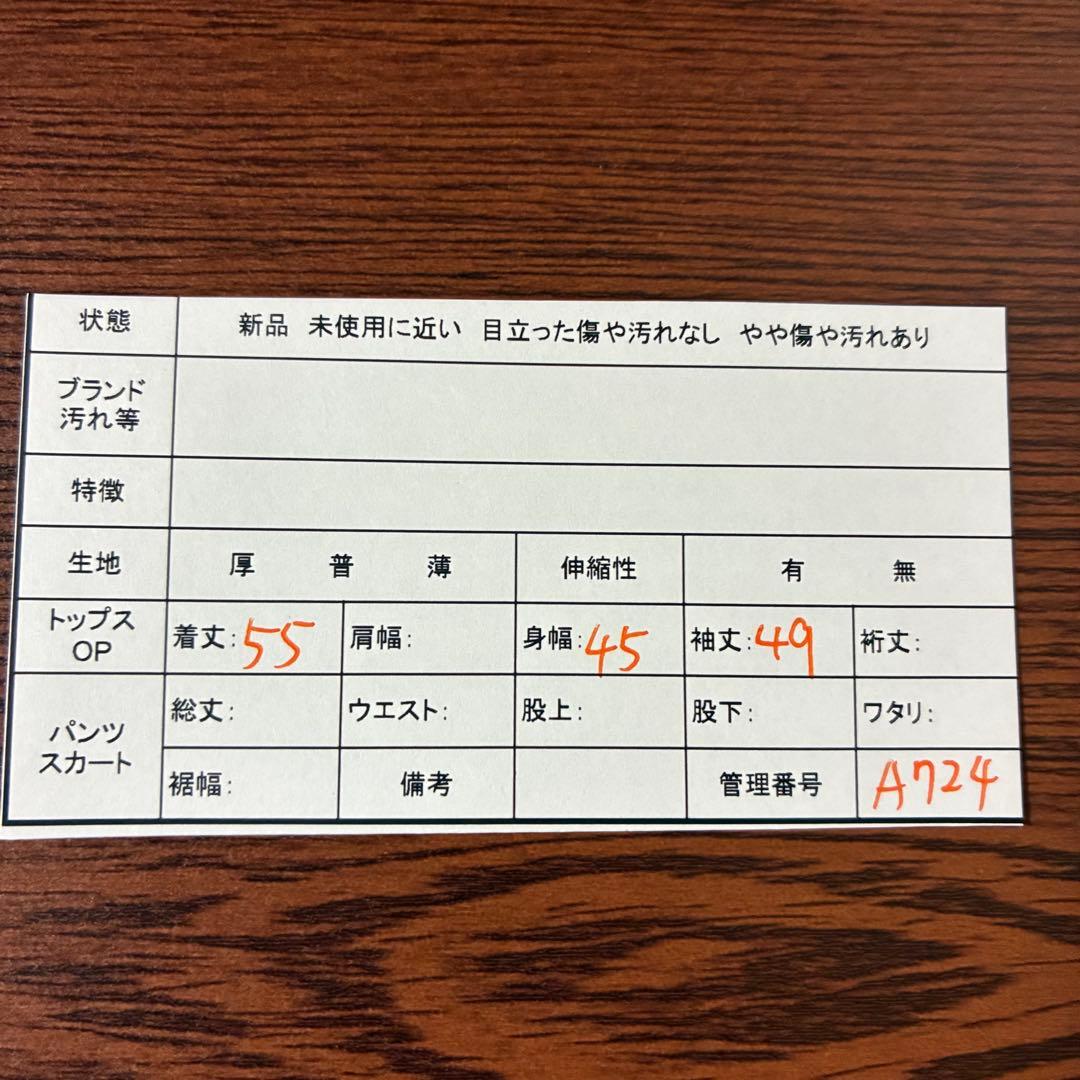 状態 新品 未使用に近い 目立った傷や汚れなし やや傷や汚れあり
ブランド
汚れ等
特徴
生地 厚 普 薄 伸縮性 有 無
トップス
OP
着丈:55 肩幅: 身幅:45 袖丈:49 裄丈:
パンツ
スカート
総丈: ウエスト: 股上: 股下: ワタリ:
裾幅: 備考 管理番号 A724